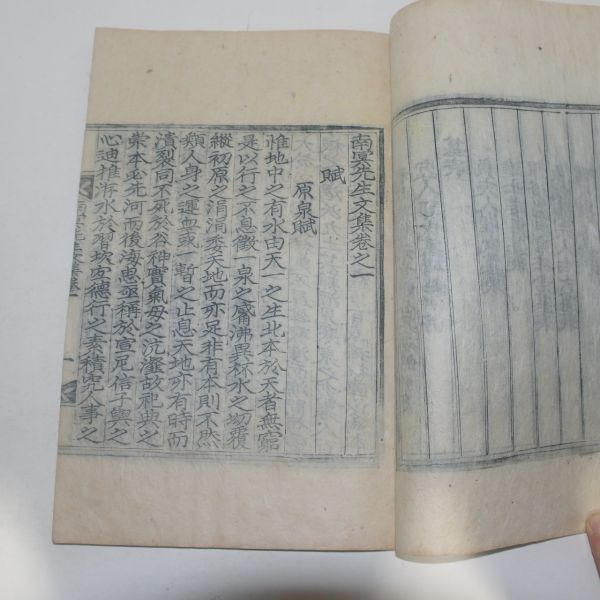 南冥先生文集卷之一
賦
原泉賦
惟地中之有水由天一之生北本於天者無窮
是以行之不息徵一泉之觱沸異杯水之坳覆
縱初原之涓涓委天地而亦足非有本則不然
類人身之運血或一暫之止息天地亦有時而
潰裂同不死於谷神實氣母之沆瀣故祀典之
崇本必先河而後海思亟稱於宣尼信子輿之
心迪推洊水於習坎宜德行之素積究人事之